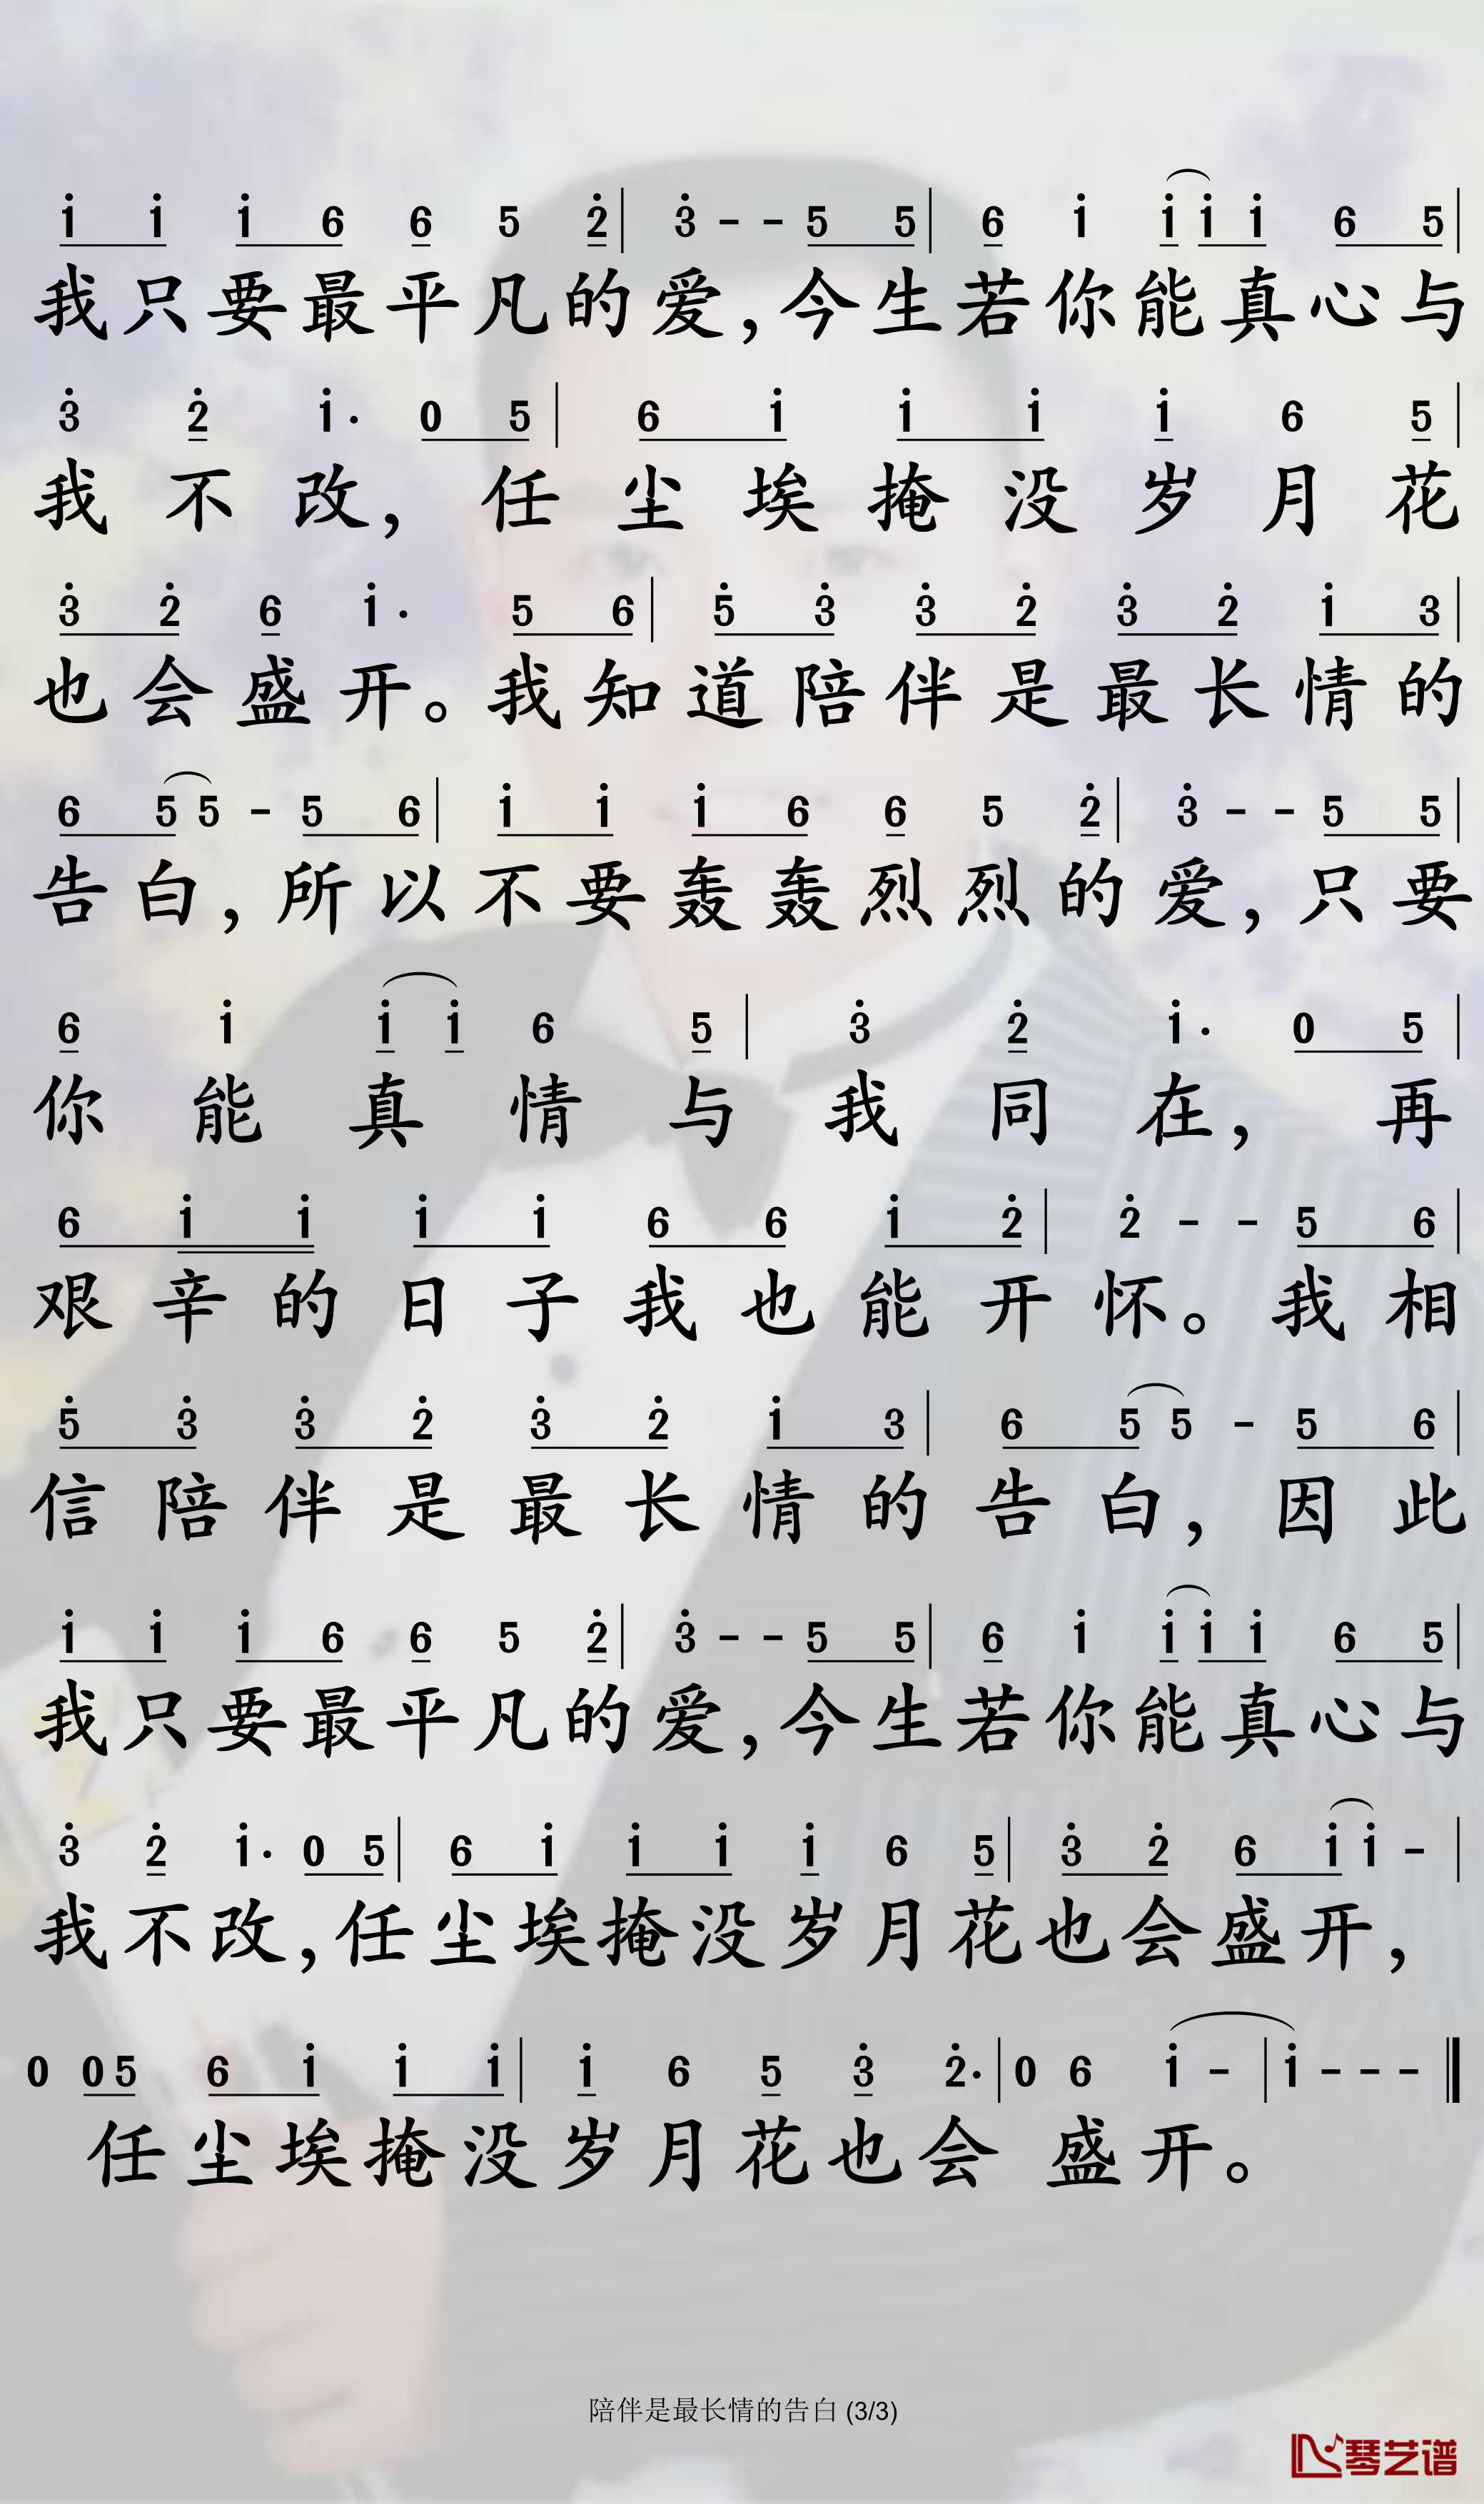 i i i 6 6 5 2 | 3 - - 5 5 | 6 i i i i 6 5 |
我只要最平凡的爱，今生若你能真心与
3 2 i · 0 5 | 6 i i i i 6 5 |
我不改，任尘埃掩没岁月花
3 2 6 i · 5 6 | 5 3 3 2 3 2 i 3 |
也会盛开。我知道陪伴是最长情的
6 5 5 - 5 6 | i i i 6 6 5 2 | 3 - - 5 5 |
告白，所以不要轰轰烈烈的爱，只要
6 i i i 6 5 | 3 2 i · 0 5 |
你能真情与我同在，再
6 i i i i 6 6 i 2 | 2 - - 5 6 |
艰辛的日子我也能开怀。我相
5 3 3 2 3 2 i 3 | 6 5 5 - 5 6 |
信陪伴是最长情的告白，因此
i i i 6 6 5 2 | 3 - - 5 5 | 6 i i i i 6 5 |
我只要最平凡的爱，今生若你能真心与
3 2 i · 0 5 | 6 i i i i 6 5 | 3 2 6 i i - |
我不改，任尘埃掩没岁月花也会盛开，
0 0 5 6 i i i | i 6 5 3 2 · | 0 6 i - | i - - - ‖
任尘埃掩没岁月花也会盛开。
陪伴是最长情的告白 (3/3)
琴艺谱